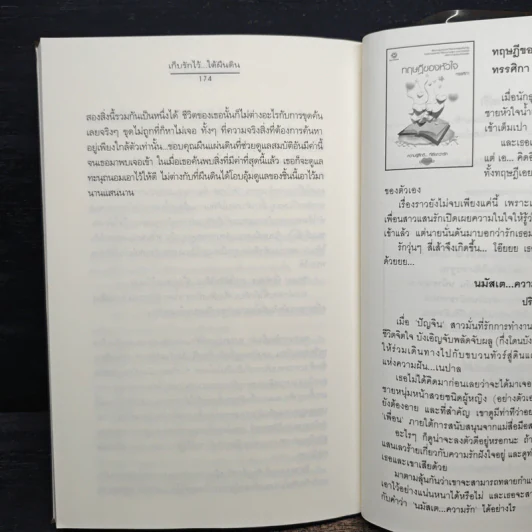 เก็บรักไว้...ใต้ผืนดิน
174
สองสิ่งนี้รวมกันเป็นหนึ่งได้ ชีวิตของเธอนั้นก็ไม่ต่างอะไรกับการขุดค้น
เลยจริงๆ ขุดไม่ถูกที่ก็หาไม่เจอ ทั้งๆ ที่ความจริงสิ่งที่ต้องการค้นหา
อยู่เพียงใกล้ตัวเท่านั้น...ขอบคุณผืนแผ่นดินที่ช่วยดูแลสมบัติอันมีค่านี้
จนเธอมาพบเจอเข้า ในเมื่อเธอค้นพบสิ่งที่มีค่าที่สุดนี้แล้ว เธอก็จะดูแล
ทะนุถนอมเอาไว้ให้ดี ไม่ต่างกับที่ผืนดินได้โอบอุ้มดูแลของชิ้นนี้เอาไว้มา
นานแสนนาน
ทฤษฎีของหัวใจ
ทฤษฎีขอ
ทรรศิกา
เมื่อนักธุ
ชายหัวใจน้ำ
เข้าเต็มเปา
และเธอ
แต่ เอ... คิดอี
ทั้งทฤษฎีเอย
ของตัวเอง
เรื่องราวยังไม่จบเพียงแค่นี้ เพราะเ
เพื่อนสาวแสนรักเปิดเผยความในใจให้รู้ว
เข้าแล้ว แต่นายนั่นดันมาบอกว่ารักเธอม
รักวุ่นๆ สี่เส้าจึงเกิดขึ้น... โอ๊ยยย เธ
ด้วยยย...
นมัสเต...ความ
ปริ
เมื่อ 'ปัญจิน' สาวมั่นที่รักการทำงาน
ชีวิตจิตใจ บังเอิญจับพลัดจับผลู (กึ่งโดนบัง
ให้ร่วมเดินทางไปกับขบวนทัวร์สู่ดินแด
แห่งความฝัน...เนปาล
เธอไม่ได้คิดมาก่อนเลยว่าจะได้มาเจอ
ชายหนุ่มหน้าสวยชนิดผู้หญิง (อย่างตัวเอ
ยังต้องอาย และที่สำคัญ เขาดูมีท่าทีว่าอย
'เพื่อน' ภายใต้การสนับสนุนจากแม่สื่อมือส
อะไรๆ ก็ดูน่าจะลงตัวดีอยู่หรอกนะ ถ้า
แสนเลวร้ายเกี่ยวกับความรักฝังใจอยู่ และดูท่
เธอและเขาเสียด้วย
มาตามลุ้นกันว่าเขาจะสามารถทลายกำแ
เอาไว้อย่างแน่นหนาได้หรือไม่ และเธอจะสา
กับคำว่า 'นมัสเต...ความรัก' ได้อย่างไร